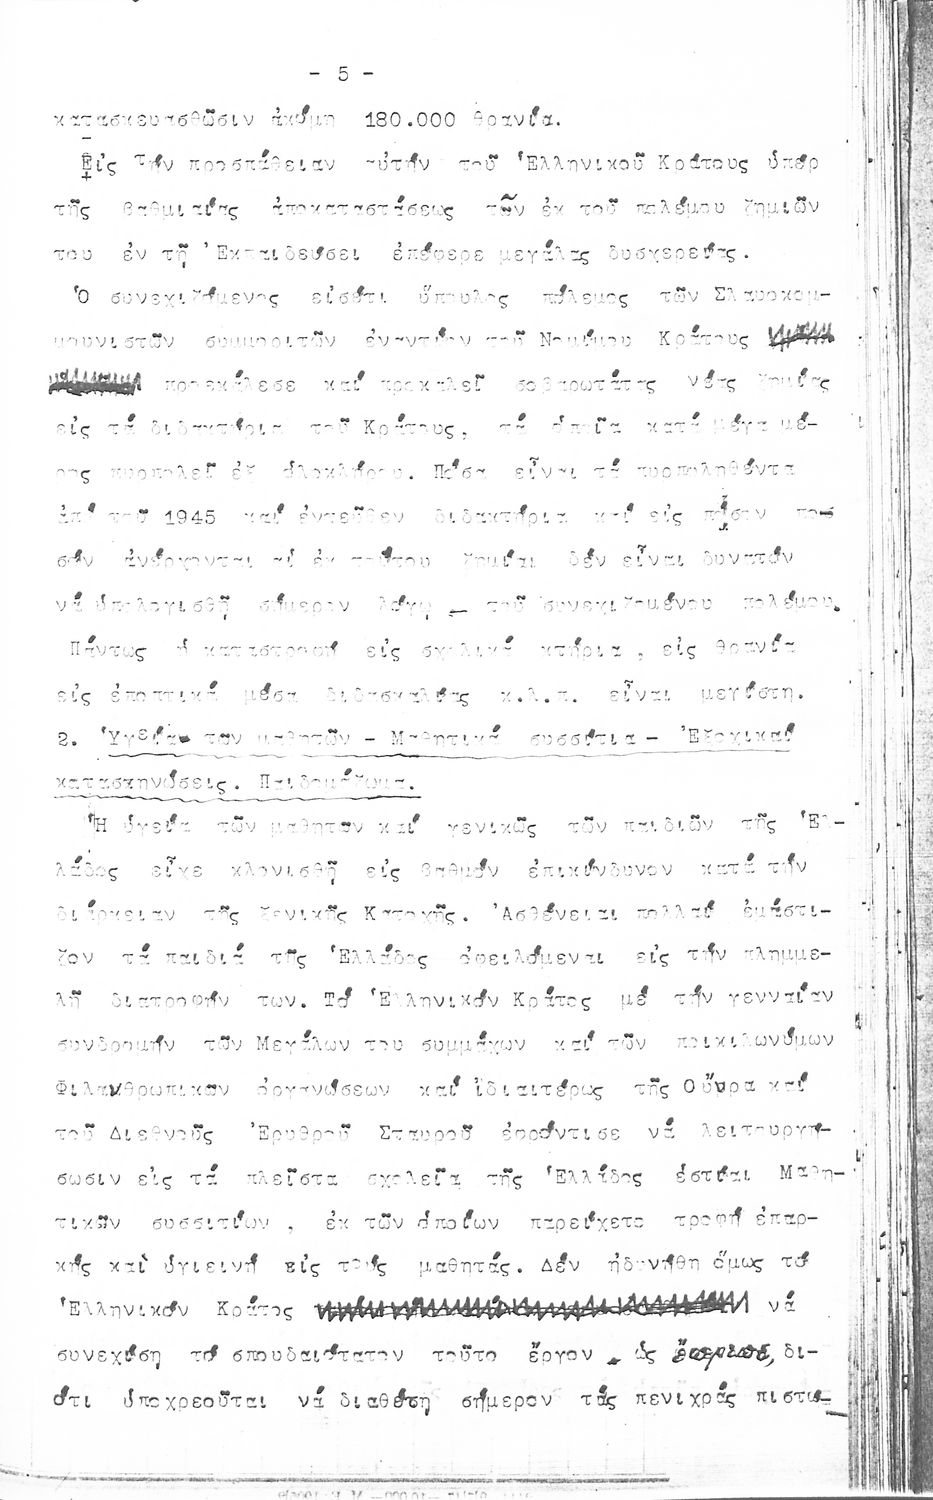 - 5 -
κατασκευασθῶσιν ἀκόμη 180.000 θρανία.
Εἰς τήν προσπάθειαν αὐτήν τοῦ Ἑλληνικοῦ Κράτους ὑπέρ
τῆς βαθμιαίας ἀποκαταστάσεως τῶν ἐκ τοῦ πολέμου ζημιῶν
του ἐν τῇ Ἐκπαιδεύσει ἐπέφερε μεγάλας δυσχερείας.
Ὁ συνεχιζόμενος εἰσέτι ὕπουλος πόλεμος τῶν Σλαυοκομ-
μουνιστῶν συμμοριτῶν ἐναντίον τοῦ Νομίμου Κράτους
προεκάλεσε καί προκαλεῖ σοβαρωτάτας νέας ζημίας
εἰς τά διδακτήρια τοῦ Κράτους, τά ὁποῖα κατά μέγα μέ-
ρος πυρπολεῖ ἐξ ὁλοκλήρου. Πόσα εἶναι τά πυρποληθέντα
ἀπό τοῦ 1945 καί ἐντεῦθεν διδακτήρια καί εἰς πόσον πο-
σόν ἀνέρχονται αἱ ἐκ τούτου ζημίαι δέν εἶναι δυνατόν
νά ὑπολογισθῇ σήμερον λόγῳ τοῦ συνεχιζομένου πολέμου.
Πάντως ἡ καταστροφή εἰς σχολικά κτήρια, εἰς θρανία
εἰς ἐποπτικά μέσα διδασκαλίας κ.λ.π. εἶναι μεγίστη.
2. Ὑγεία των μαθητῶν - Μαθητικά συσσίτια - Ἐξοχικαί
κατασκηνώσεις. Παιδομάζωμα.
Ἡ ὑγεία τῶν μαθητων καί γενικῶς τῶν παιδιῶν τῆς Ἑλ-
λάδος εἶχε κλονισθῆ εἰς βαθμόν ἐπικίνδυνον κατά τήν
διάρκειαν τῆς ξενικῆς Κατοχῆς. Ἀσθένειαι πολλαί ἐμάστι-
ζον τά παιδιά τῆς Ἑλλάδος ὀφειλόμεναι εἰς τήν πλημμε-
λῆ διατροφήν των. Τό Ἑλληνικόν Κράτος μέ τήν γενναίαν
συνδρομήν τῶν Μεγάλων του συμμάχων καί τῶν ποικιλωνύμων
Φιλανθρωπικων ὀργανώσεων καί ἰδιαιτέρως τῆς Οὔνρα καί
τοῦ Διεθνοῦς Ἐρυθροῦ Σταυροῦ ἐφρόντισε νά λειτουργή-
σωσιν εἰς τά πλεῖστα σχολεῖα τῆς Ἑλλάδος ἑστίαι Μαθη-
τικῶν συσσιτίων, ἐκ τῶν ὁποίων παρείχετο τροφή ἐπαρ-
κής καὶ ὑγιεινή εἰς τούς μαθητάς. Δέν ἠδυνήθη ὅμως τό
Ἑλληνικόν Κράτος νά
συνεχίσῃ τό σπουδαιότατον τοῦτο ἔργον ὡς δι-
ότι ὑποχρεοῦται νά διαθέτῃ σήμερον τάς πενιχράς πιστώ-